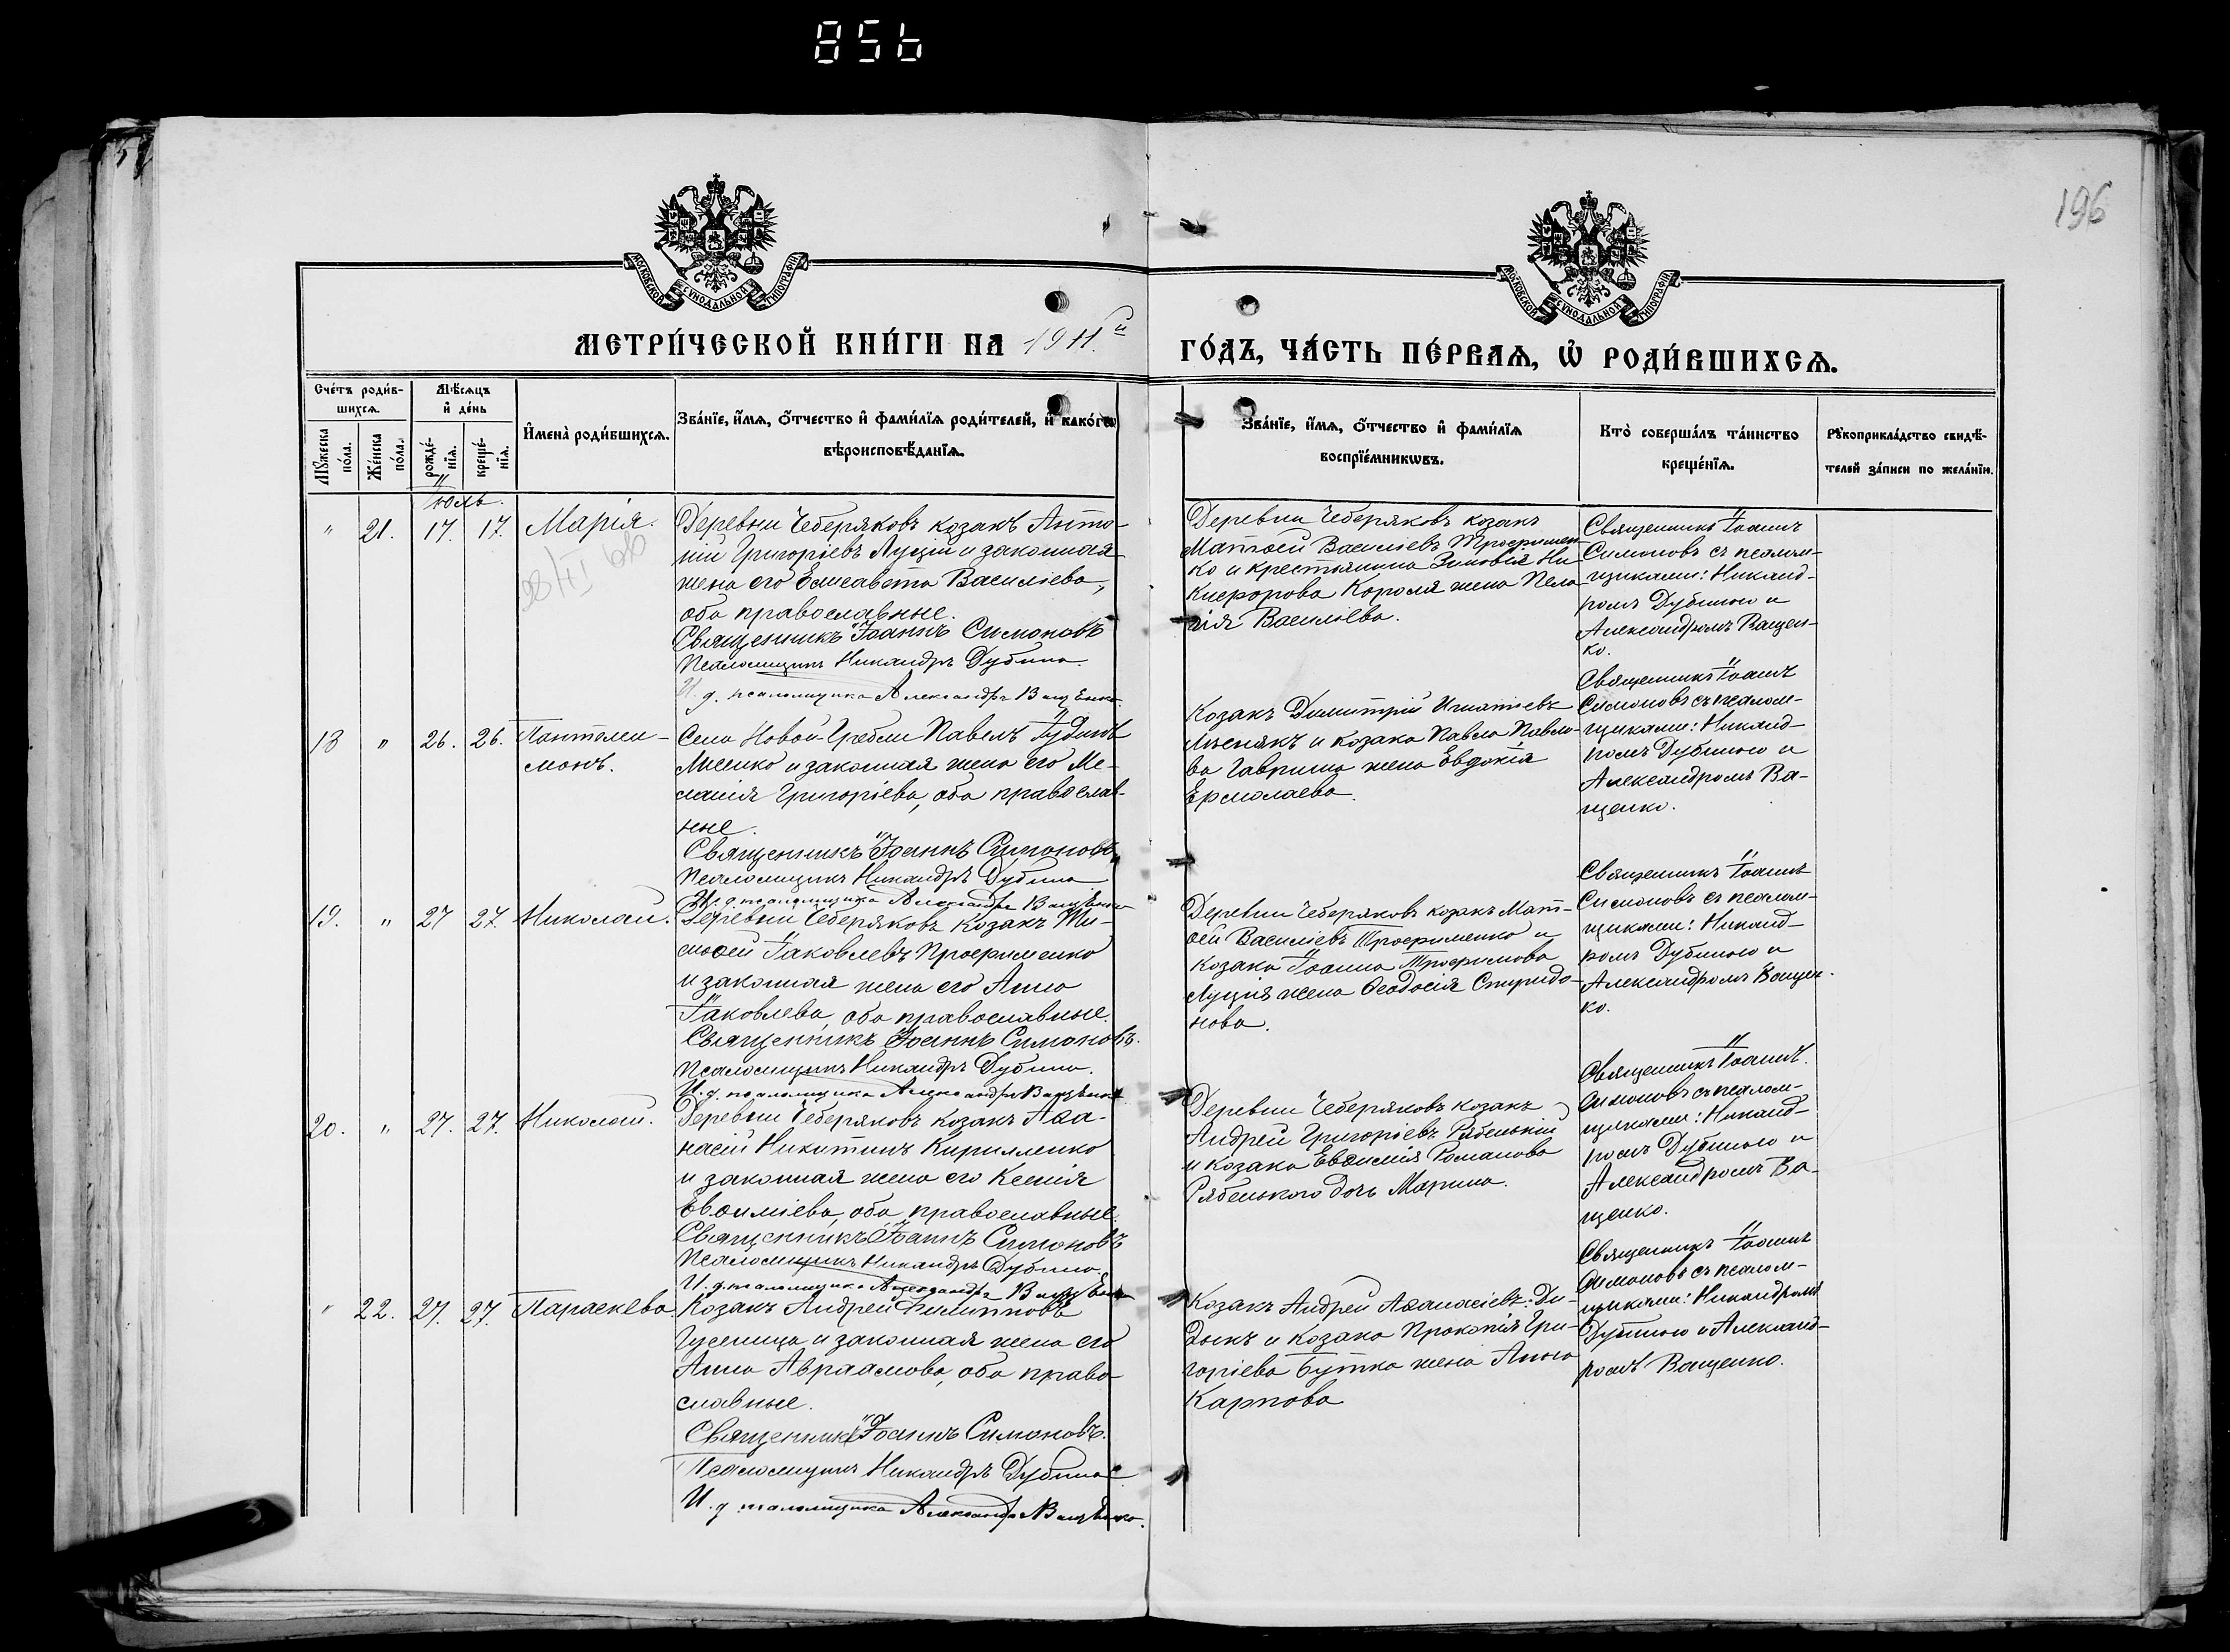 856
196
МОСКОВСКОЙ СѴНОДАЛЬНОЙ ТИПОГРАФІИ
МОСКОВСКОЙ СѴНОДАЛЬНОЙ ТИПОГРАФІИ
МЕТРИ́ЧЕСКОЙ КНИ́ГИ НА 1911.й
ГО́ДЪ, ЧА́СТЬ ПЕ́РВАѦ, Ѡ҆ РОДИ́ВШИХСѦ.
Сче́тъ роди́в-
шихсѧ.
Мѣ́сѧцъ
и҆ де́нь
Мꙋ́жеска
по́ла.
Же́нска
по́ла.
рожде́-
нїѧ.
креще́-
нїѧ.
И҆мена̀ роди́вшихсѧ.
Зва́нїе, и҆́мѧ, ѻ҆́тчество и҆ фами́лїѧ роди́телей, и҆ како́гѡ
вѣроисповѣ́данїѧ.
Зва́нїе, и҆́мѧ, ѻ҆́тчество и҆ фами́лїѧ
воспрїе́мникѡвъ.
Кто̀ соверша́лъ та́инство
креще́нїѧ.
Рꙋкоприкла́дство свидѣ́-
телей за́писи по жела́нїи.
Іюль.
" 21. 17. 17. Марія.
Деревни Чеберяковъ козакъ Анто-
ній Григоріевъ Луцій и законная
жена его Елисавета Василіева,
оба православные.
Священникъ Іоаннъ Симоновъ
Псаломщикъ Никандръ Дубина
И. д. псаломщика Александръ Ващенко.
Деревни Чеберяковъ козакъ
Матѳей Василіевъ Трофимен-
ко и крестьянина Зиновія Ни-
кифорова Короля жена Пела-
гія Василіева.
Священникъ Іоаннъ
Симоновъ съ псалом-
щиками: Никанд-
ромъ Дубиною и
Александромъ Ващен-
ко.
18 " 26. 26. Пантелеи-
монъ.
Села Новой-Гребли Павелъ Іудинъ
Мисенко и законная жена его Ме-
ланія Григоріева, оба православ-
ные.
Священникъ Іоаннъ Симоновъ
Псаломщикъ Никандръ Дубина
И. д. псаломщика Александръ Ващенко
Козакъ Димитрій Игнатіевъ
и козака Павла Павло-
ва Гавриша жена Евдокія
Ермолаева.
Священникъ Іоаннъ
Симоновъ съ псалом-
щиками: Никанд-
ромъ Дубиною и
Александромъ Ва-
щенко.
19. " 27 27. Николай.
Деревни Чеберяковъ козакъ Ти-
моѳей Іаковлевъ Трофименко
и законная жена его Анна
Іаковлева, оба православные.
Священникъ Іоаннъ Симоновъ.
Псаломщикъ Никандръ Дубина.
И. д. псаломщика Александръ Ващенко
Деревни Чеберяковъ козакъ Мат-
ѳей Василіевъ Трофименко и
козака Іоанна Трофимова
Луція жена Ѳеодосія Спиридо-
нова.
Священникъ Іоаннъ
Симоновъ съ псалом-
щиками: Никанд-
ромъ Дубиною и
Александромъ Ващен-
ко.
20. " 27. 27. Николай.
Деревни Чеберяковъ козакъ Аѳа-
насій Никитинъ Кирилленко
и законная жена его Ксенія
Евѳиміева, оба православные.
Священникъ Іоаннъ Симоновъ
Псаломщикъ Никандръ Дубина.
И. д. псаломщика Александръ Ващенко
Деревни Чеберяковъ козакъ
Андрей Григоріевъ Рябенький
и козака Евѳимія Романова
Рябенького дочь Марина.
Священникъ Іоаннъ.
Симоновъ съ псалом-
щиками: Никанд-
ромъ Дубиною и
Александромъ Ва-
щенко.
" 22. 27. 27. Параскева.
Козакъ Андрей Филипповъ
Гусеница и законная жена его
Анна Авраамова, оба право-
славные.
Священникъ Іоаннъ Симоновъ.
Псаломщикъ Никандръ Дубина
И. д. псаломщика Александръ Ващенко.
Козакъ Андрей Аѳанасіевъ Ди-
дыкъ и козака Прокопія Гри-
горіева Бутка жена Анна
Карпова
Священникъ Іоаннъ
Симоновъ съ псалом-
щиками: Никандромъ
Дубиною и Александ-
ромъ Ващенко.